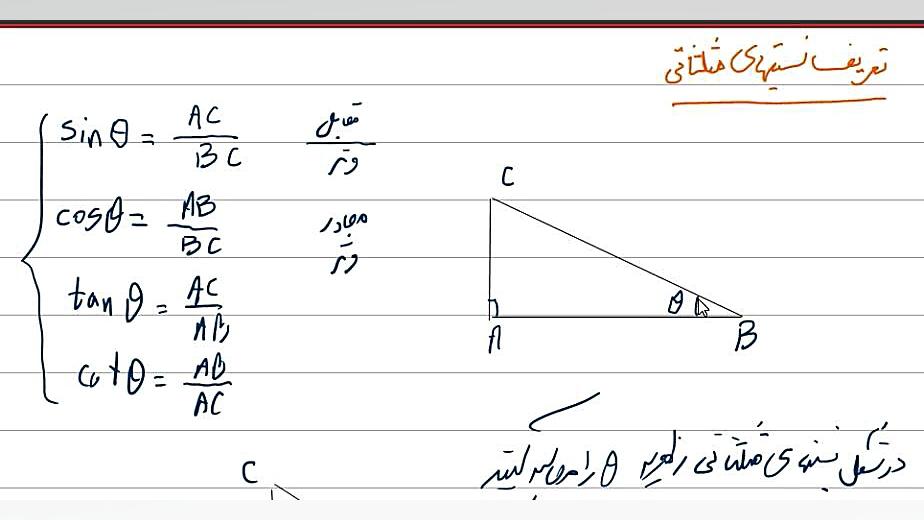 تعریف نسبتهای مثلثاتی
sin θ = AC / BC مقابل / وتر
cos θ = AB / BC مجاور / وتر
tan θ = AC / AB
cot θ = AB / AC
C
θ
A B
در شکل نسبتهای مثلثاتی زاویه θ را
C